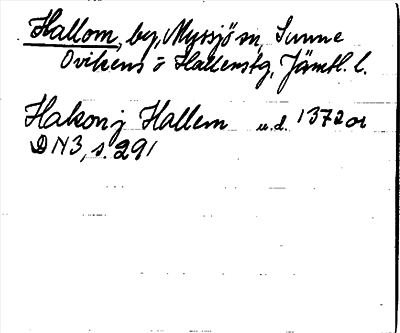 Hallom, by, Myssjö sn, Sunne
Ovikens o Hallens tg, Jämtl. l.
Hakon j Hallem u.d. 1372 or
DN 3, s. 291